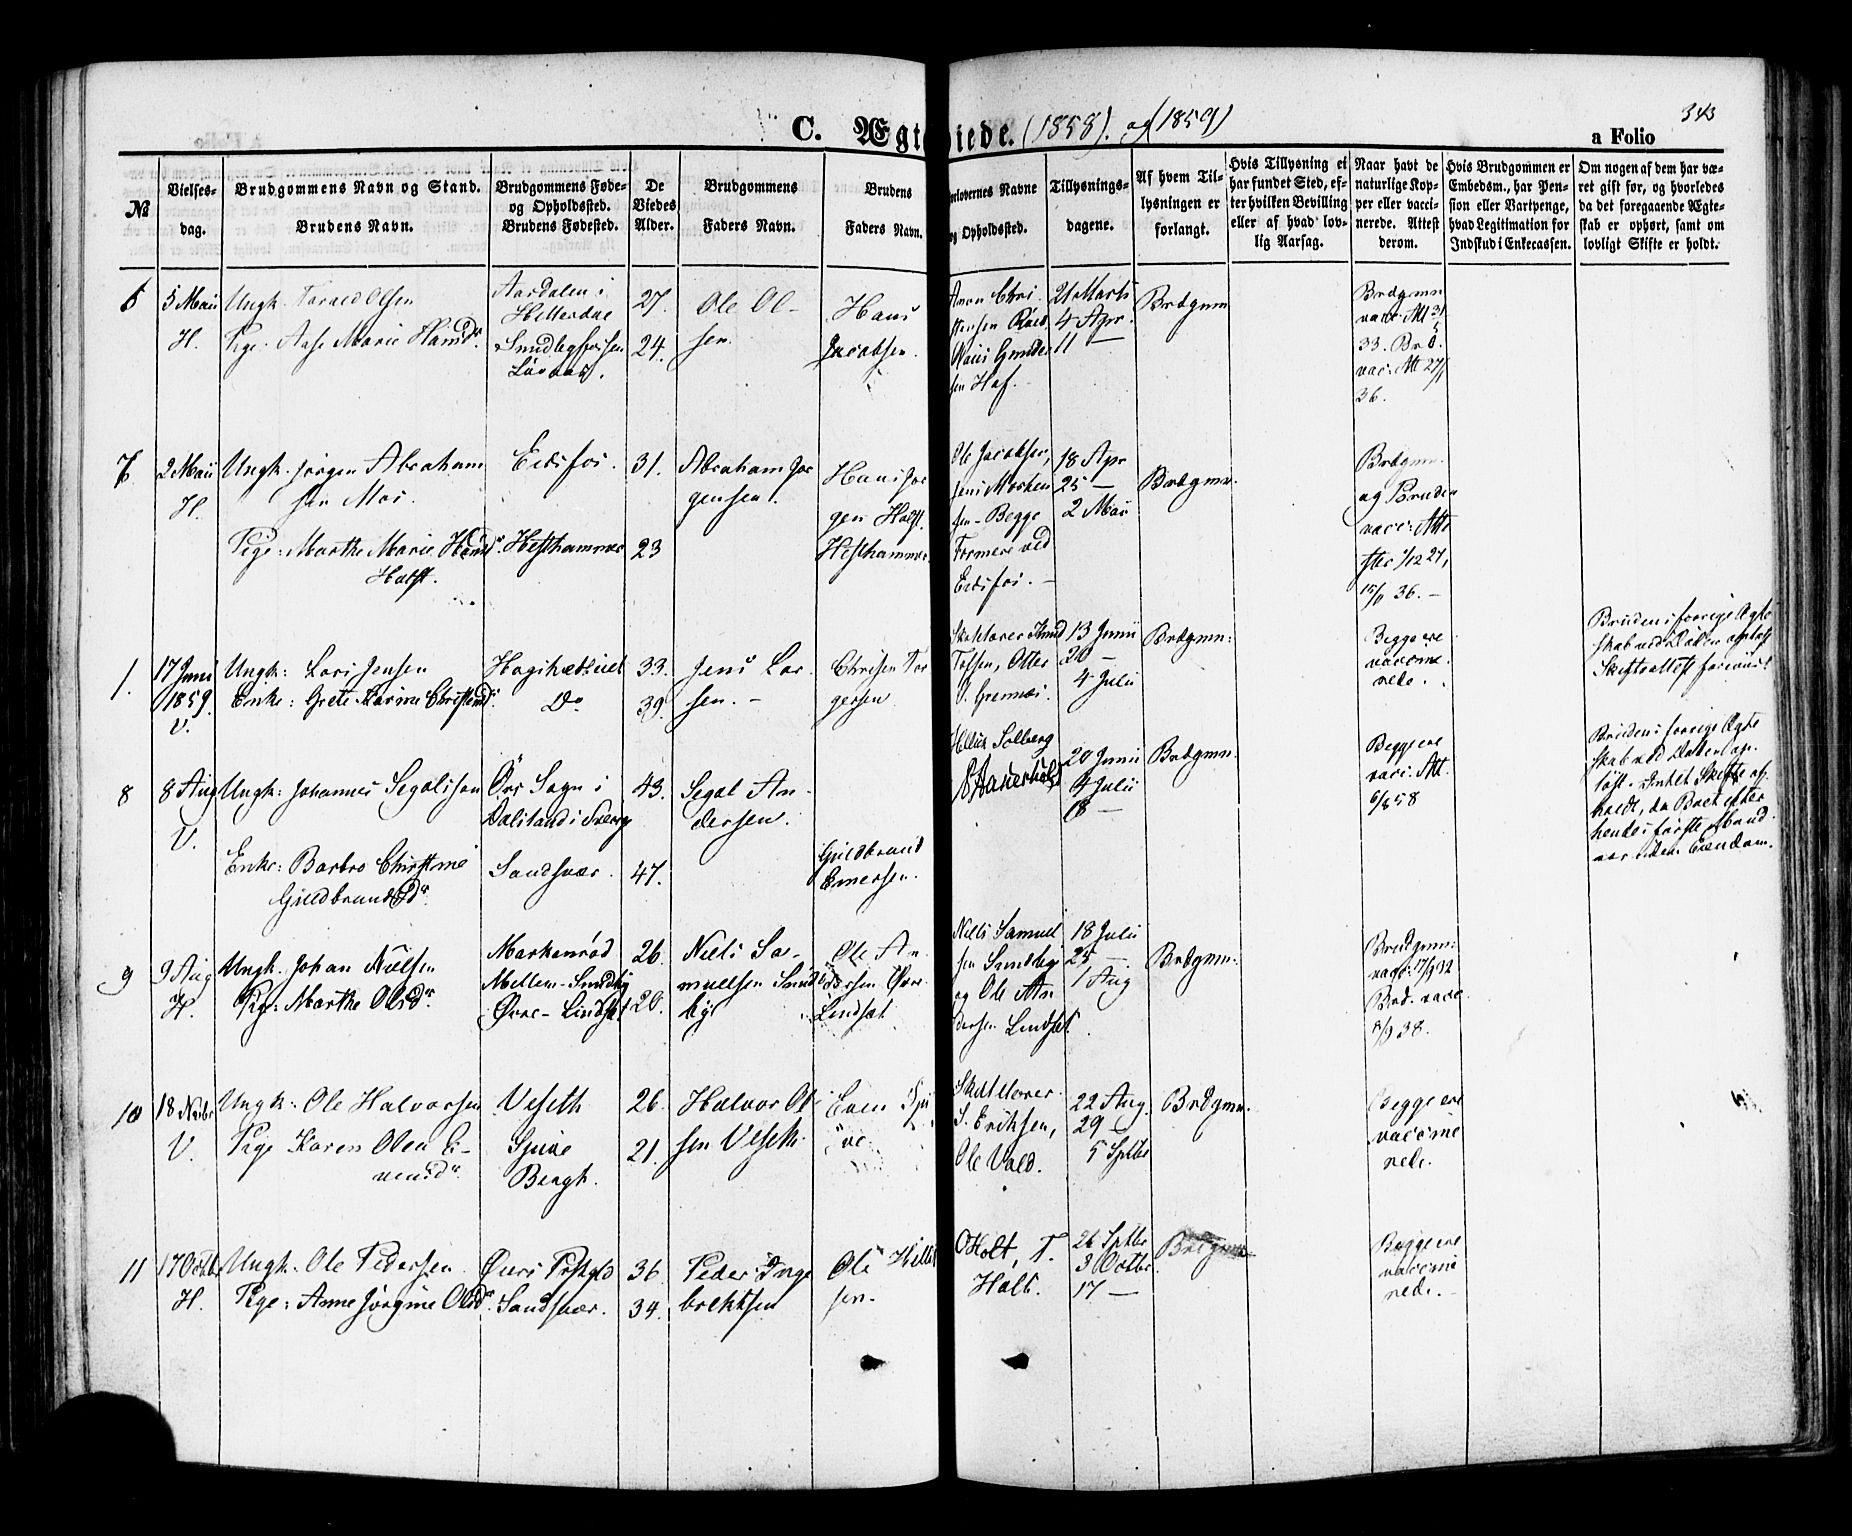 C. Ægteviede. (1858). og (1859)
343
a Folio
№
Vielses-
dag.
Brudgommens Navn og Stand.
Brudens Navn.
Brudgommens Føde-
og Opholdssted.
Brudens Fødested.
De
Viedes
Alder.
Brudgommens
Faders Navn.
Brudens
Faders Navn.
Forlovernes Navne
og Opholdssted.
Tillysnings-
dagene.
Af hvem Til-
lysningen er
forlangt.
Hvis Tillysning ei
har fundet Sted, ef-
ter hvilken Bevilling
eller af hvad lov-
lig Aarsag.
Naar havt de
naturlige Kop-
per eller vacci-
nerede. Attest
derom.
Hvis Brudgommen er
Embedsm., har Pen-
sion eller Vartpenge,
hvad Legitimation for
Indskud i Enkecassen.
Om nogen af dem har væ-
ret gift før, og hvorledes
da det foregaaende Ægte-
skab er ophørt, samt om
lovligt Skifte er holdt.
6
5 Maii
H.
Ungk. Olsen
Pige. Aase Marie Hansdr.
i
Hitterdal
27.
24.
Ole Ol-
sen.
Hans
Jacobsen.
21 Marts
4 Apr.
11 —
Brdgmn
Brdgmn
vacc. Att 31/5
33. Brd.
vac. Att 27/1
36.
7
2 Maii
H.
Ungk. Jørgen Abraham
sen Moe.
Pige: Marthe Marie Hansdr.
Holst.
Eidsfos.
Hesthammer
31.
23
Abraham Jør
gensen.
Hans Jør
gen Holst.
Hesthammer
Ole Jacobsen,
Jens Morten
sen - Begge
Formere ved
Eidsfos. -
18 Apr
25 —
2 Maii
Brdgmn.
Brdgmn.
og Bruden
vacc: Atte
ster 1/12 27,
36. -
1.
17 Juni
1859.
V.
Ungk: Lars Jensen
Enke: Grete Karine Christensdr.
Do
33.
39.
Jens Lar
sen. -
Christen Tor
gersen
13 Junii
20 —
4 Julii
Brdgmn:
Begge ere
vaccine
rede.
Brudens forrige Ægte
skab ved Døden opløst
Skifteattest forevist
8
8 Aug
V.
Ungk: Johannes Segolsen
Enke: Barbro Christine
Guldbrandsdr.
Örs Sogn i
Dalsland i Sverig
Sandsvær.
43.
47.
Segol An
dersen.
Guldbrand
Enersen.
Solberg
20 Junii
4 Julii
18 —
Brdgmn.
Begge ere
vacc. Att.
6/8 58
Brudens forrige Ægte
skab ved Døden op-
løst. Intet Skifte af
holdt, da Boet efter
hendes første Mand
var uden Eiendom.
9
9 Aug
H.
Ungk. Johan Nielsen
Pig: Marthe Olsdr.
Markenrød
Mellem-Smedby
Øvre-Lindset
26.
20.
Niels Sa-
muelsen Smed
by
Ole An
dersen Øvre
Lindset
Niels Samuel
sen Smedby
og Ole An
dersen Lindset.
18 Julii
25 —.
1 Aug
Brdgmn:
Brudgmn:
vacc: 17/9 32
Brd. vacc.
38.
10
18 Novbr
V.
Ungk: Ole Halvorsen
Pige Karen Olea E-
vensdr.
Veseth
Bergh.
26.
21.
Halvor Ol
sen Veseth
Even
Skafteløver
S. Eriksen,
Ole Vold.
22 Aug.
29 —
5 Sptbr
Brdgmn.
Begge ere
vaccine
rede.
11
17 Octbr
H.
Ungk: Ole Pedersen
Pige: Anne Jørgine Olsdr.
Sandsvær.
36.
34.
Peder Inge
brektsen
Ole
sen.
O Holt, T.
Holt.
26 Sptbr
3 Octbr
17 —
Brdgmn
Begge ere
vaccine
rede. -